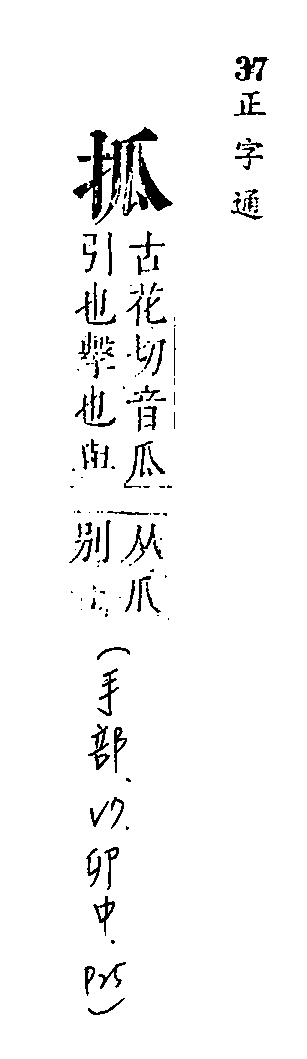 37 正字通
㧓
古花切音瓜
引也擊也與
从爪
别
(手部、V7.卯中.P25)